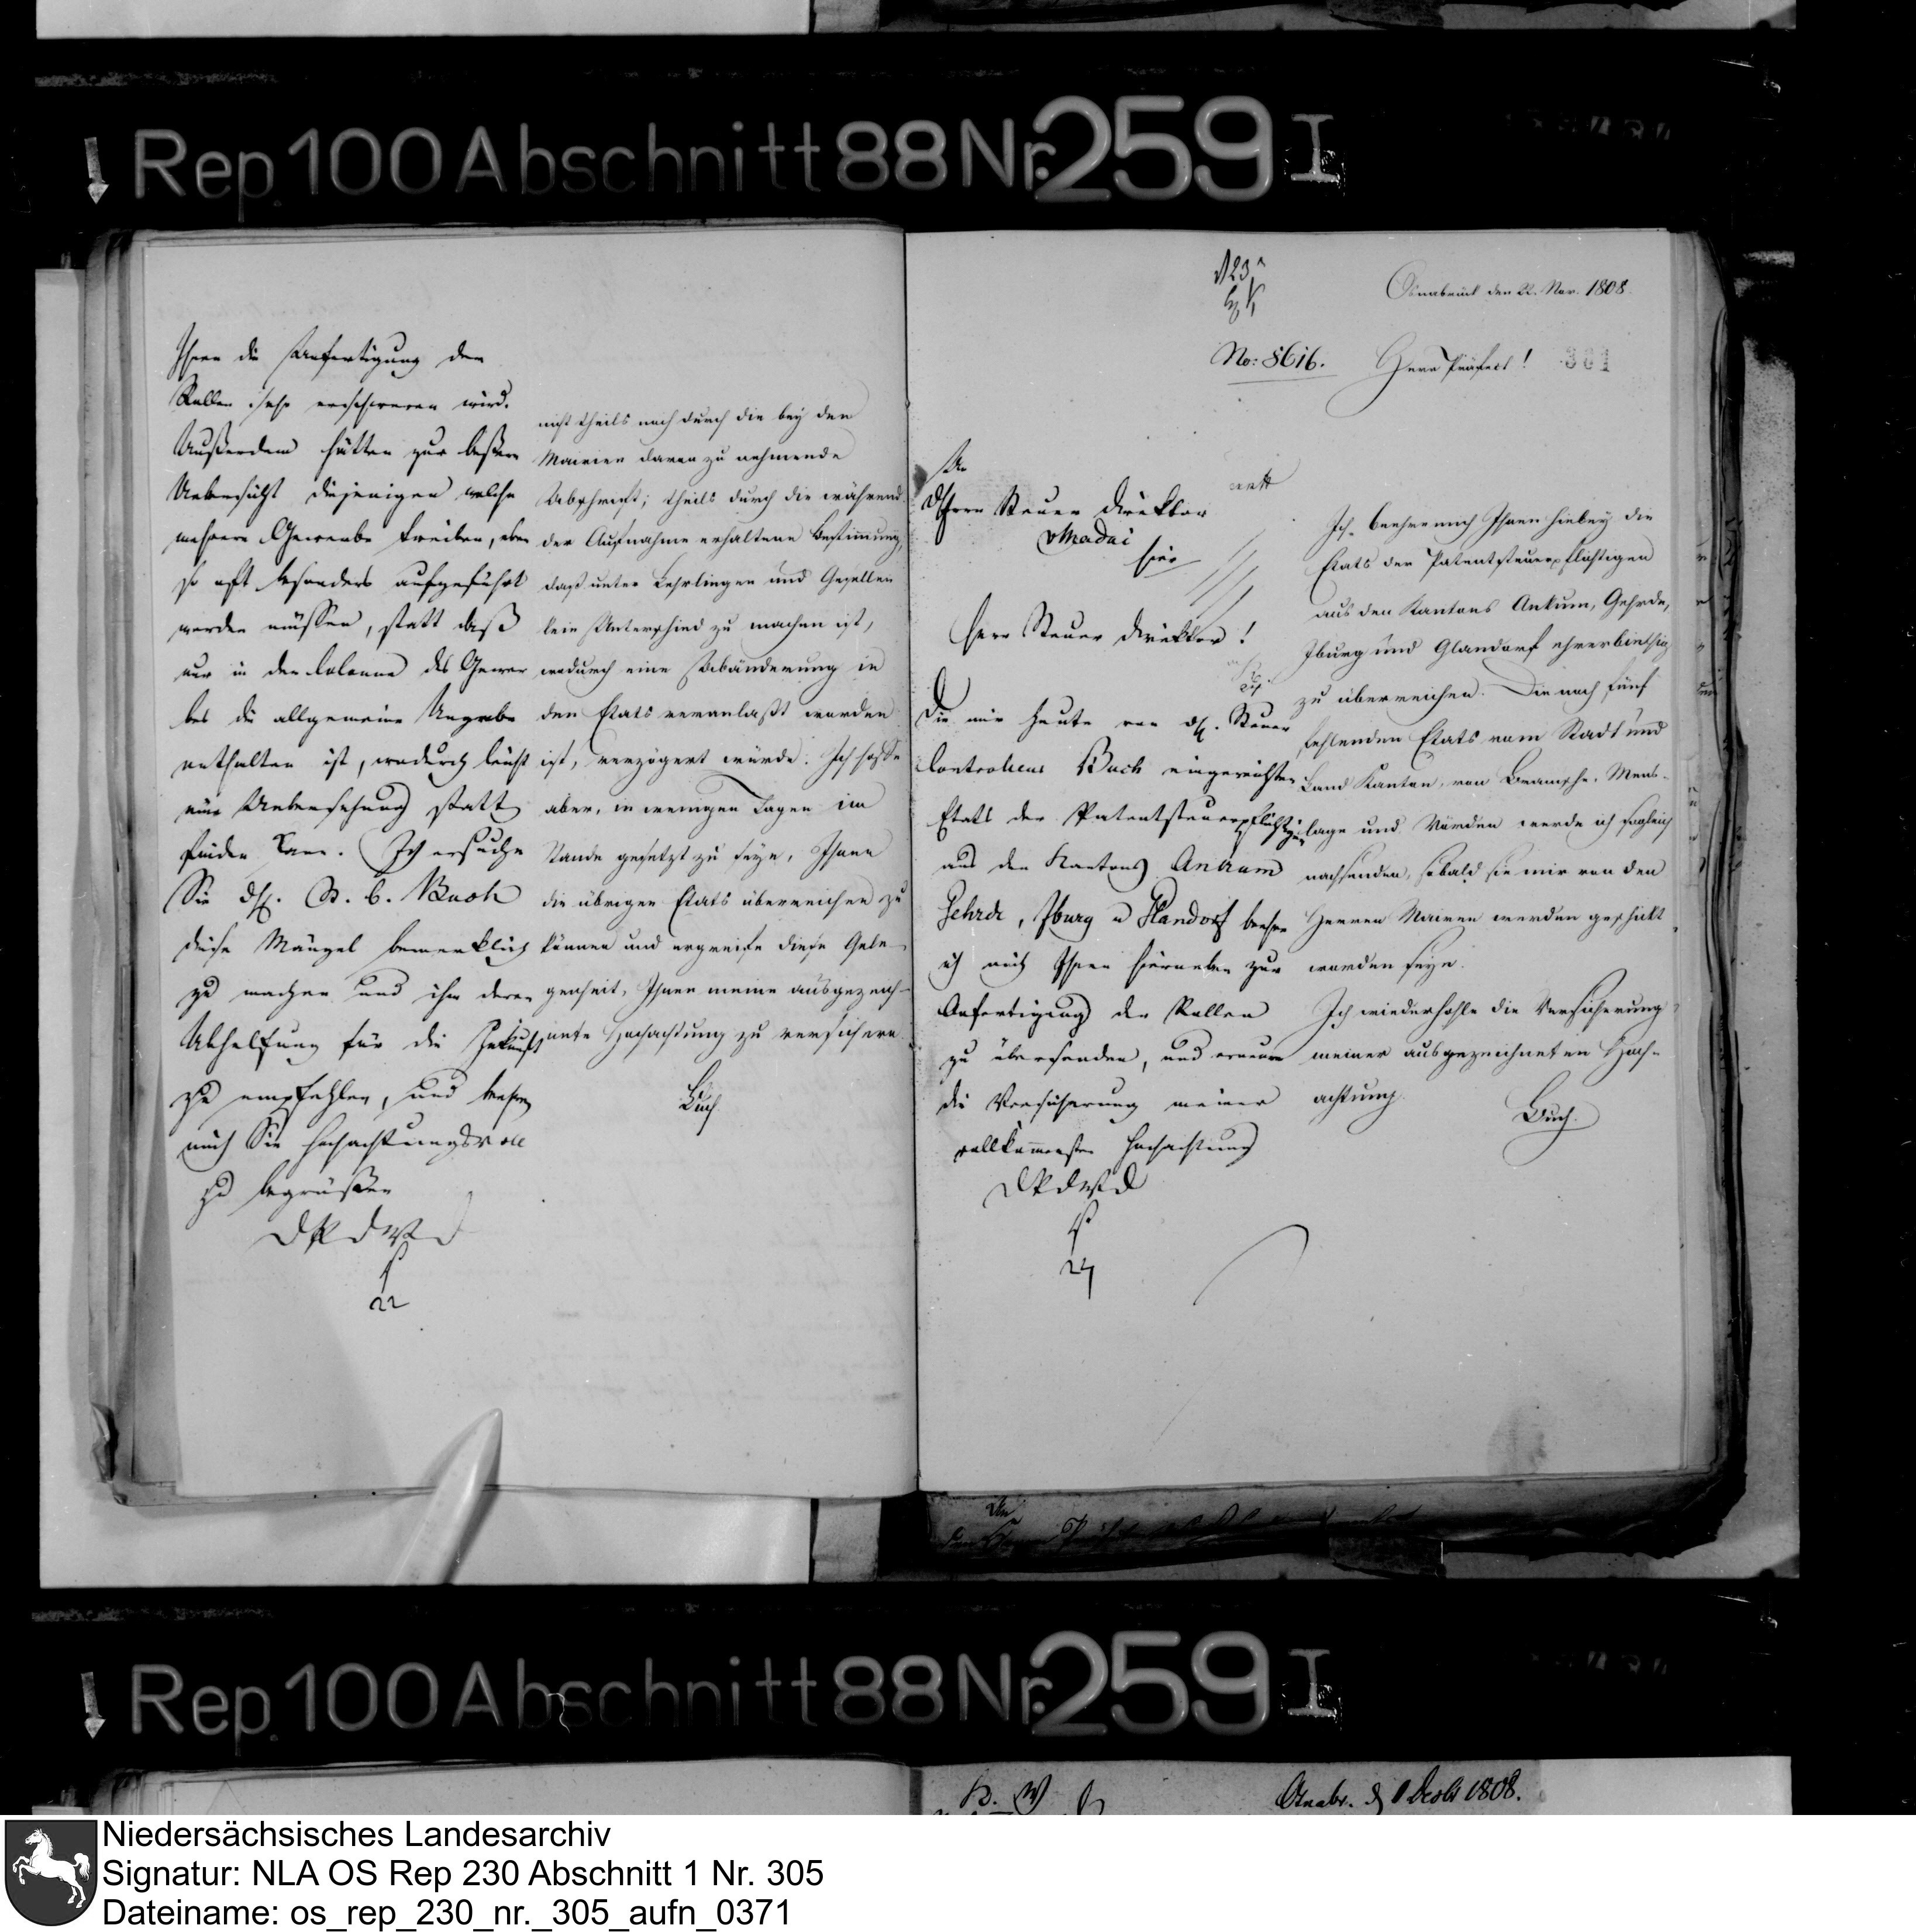 Rep. 100 Abschnitt 88 Nr. 259 I
Ihnen die Anfertigung der
Rollen sehr erschweren wird.
Außerdem hätten zur beßern
Uebersicht diejenigen welche
mehrere Gewerbe treiben, eben
so oft besonders aufgeführt
werden müssen, statt daß
nur in der Colonne des Gewer
bes die allgemeine Angabe
enthalten ist, wodurch leicht
eine Uebersehung statt
finden kann. Ich ersuche
Sie H. St. C. Buch
diese Mängel bemerklich
zu machen und ihm deren
Abhelfung für die Zukunft
zu empfehlen, und beehre
mich Sie hochachtungsvoll
zu begrüßen
DPdWD
22
nicht theils noch durch die bey den
Mairien davon zu nehmende
Abschrift; theils durch die während
der Aufnahme erhaltene Bestimmung,
daß unter Lehrlingen und Gesellen
kein Unterschied zu machen ist,
wodurch eine Abänderung in
den Etats veranlaßt worden
ist, verzögert würde. Ich hoffe
aber, in wenigen Tagen im
Stande gesetzt zu seyn, Ihnen
die übrigen Etats überreichen zu
können und ergreife diese Gele
genheit, Ihnen meine ausgezeich-
nete Hochachtung zu versichern.
Buch
Osnabrück den 22. Nov. 1808.
No: 8616.
Herr Präfect!
361
An
Herrn Steuer Direktor
v Madai
hier
Herr Steuer Direktor!
Die mir heute von H. Steuer
Controlleur Buch eingereichten
Etats der Patentsteuerpflichtigen
aus den Kantons Ankum
Gehrde, Iburg u Glandorf beehre
ich mich Ihnen hierneben zur
Anfertigung der Rollen
zu übersenden, und erneure
die Versicherung meiner
vollkommensten Hochachtung
DPdWD
24
Ich beehre mich Ihnen hiebey die
Etats der Patentsteuerpflichtigen
aus den Kantons Ankum, Gehrde,
Iburg und Glandorf ehrerbietig
zu überreichen. Die noch fünf
fehlenden Etats vom Stadt und
Land Kanton, von Bramsche, Mens-
lage und Vörden werde ich sogleich
nachsenden, sobald sie mir von den
Herren Mairen werden geschikt
worden seyn.
Ich wiederhohle die Versicherung
meiner ausgezeichneten Hoch-
achtung.
Buch.
Rep. 100 Abschnitt 88 Nr. 259 I
Osnabr. d 1 Decbr 1808.
Niedersächsisches Landesarchiv
Signatur: NLA OS Rep 230 Abschnitt 1 Nr. 305
Dateiname: os_rep_230_nr._305_aufn_0371